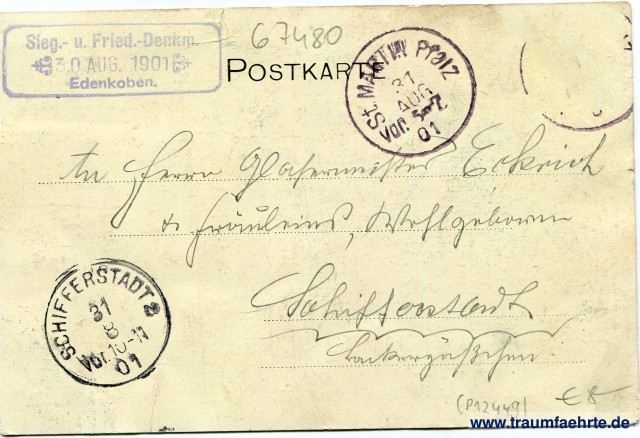 Sieg.- u. Fried.-Denkm.
30 AUG. 1901
Edenkoben.
67480
POSTKARTE
St. MARTIN Pfalz
31
AUG
Vor. 5-7.
01
An Herrn Glasermeister Eckrich
& Fräuleins, Wohlgeboren
Schifferstadt
Lackergäßchen.
SCHIFFERSTADT 2
31
8
Vor. 10-11
01
(P12449)
€ 8
www.traumfaehrte.de